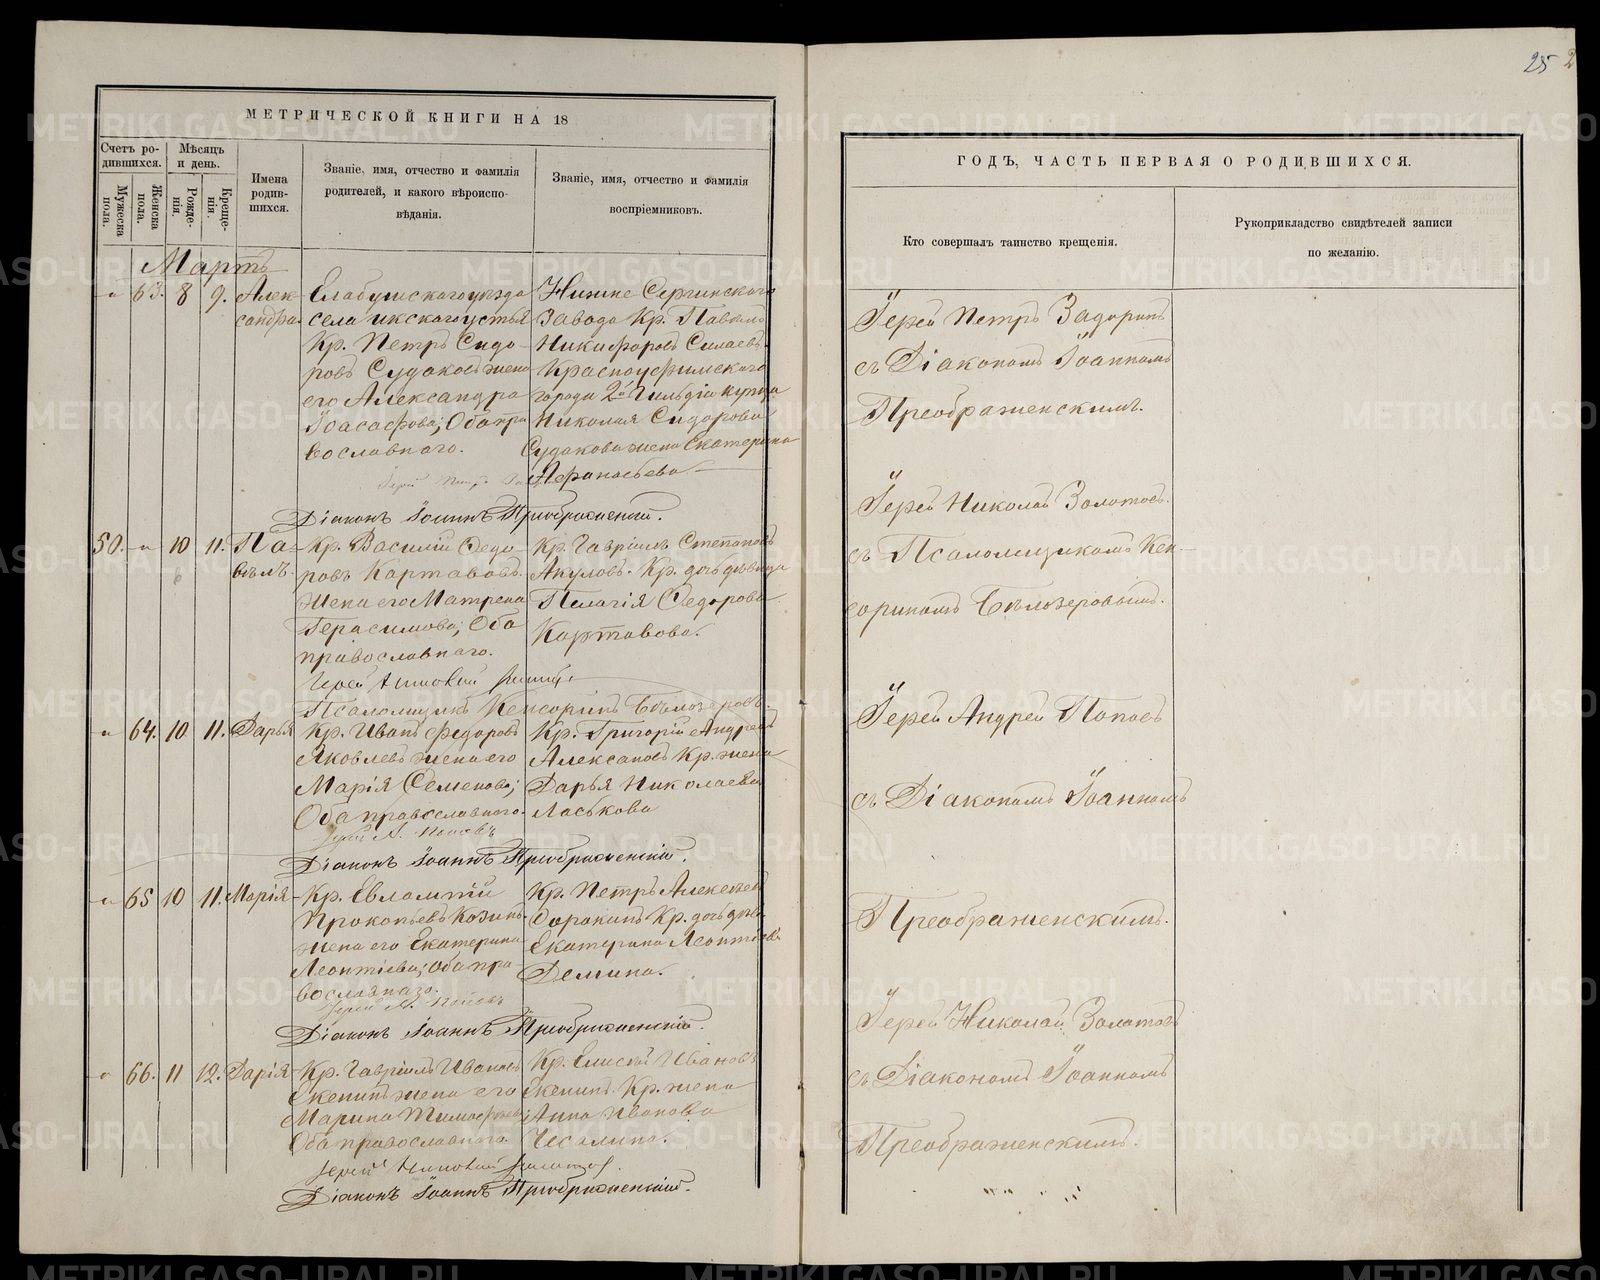 25
МЕТРИЧЕСКОЙ КНИГИ НА 18
Счетъ ро-
дившихся.
Мужеска
пола.
Женска
пола.
Мѣсяцъ
и день.
Рожде-
нія.
Креще-
нія.
Имена
родив-
шихся.
Званіе, имя, отчество и фамилія
родителей, и какого вѣроиспо-
вѣданія.
Званіе, имя, отчество и фамилія
воспріемниковъ.
Мартъ
63. 8 9. Алек-
сандра.
Елабужскаго уѣзда
села икскагоустья
Кр. Петръ Сидо-
ровъ Судаковъ жена
его Александра
Іоасафова; Оба пра
вославнаго.
Нижне Сергинскаго
Завода Кр. Павелъ
Никифоровъ Силаевъ.
Красноуфимскаго
города 2й Гильдіи купца
Николая Сидорова
Судакова жена Екатерина
Афанасьева.
Діаконъ Іоаннъ Преображенскій.
50. 10 11. Па-
велъ.
Кр. Василій Федо-
ровъ Картавовъ.
Жена его Матрена
Герасимова; Оба
православнаго.
Кр. Гавріилъ Степановъ
Акуловъ. Кр. дочь дѣвица
Пелагія Федорова
Картавова.
Псаломщикъ Кенсоринъ Бѣлозеровъ.
64. 10 11. Дарья
Кр. Иванъ Федоровъ
Яковлевъ жена его
Марія Семенова;
Оба православнаго.
Кр. Григорій Андреевъ
Алексановъ Кр. жена
Дарья Николаева
Ласькова
Іерей А. Поповъ
Діаконъ Іоаннъ Преображенскій.
65 10 11. Марія
Кр. Евлампій
Прокопьевъ Козинъ
жена его Екатерина
Леонтіева; Оба пра-
вославнаго.
Кр. Петръ Алексеевъ
Сорокинъ Кр. дочь дѣв.
Екатерина Леонтіева
Демина.
Іерей А. Поповъ
Діаконъ Іоаннъ Преображенскій.
66. 11 12. Дарія
Кр. Гавріилъ Ивановъ
Скепинъ жена его
Марина Тимофеева;
Оба православнаго.
Кр. Елисей Ивановъ
Скепинъ. Кр. жена
Анна Иванова
Чесалина.
Іерей Николай Золотовъ.
Діаконъ Іоаннъ Преображенскій.
ГОДЪ, ЧАСТЬ ПЕРВАЯ О РОДИВШИХСЯ.
Кто совершалъ таинство крещенія.
Рукоприкладство свидѣтелей записи
по желанію.
Іерей Петръ Задоринъ
съ Діакономъ Іоанномъ
Преображенскимъ.
Іерей Николай Золотовъ.
съ Псаломщикомъ Кен-
сориномъ Бѣлозеровымъ.
Іерей Андрей Поповъ
съ Діакономъ Іоанномъ
Преображенскимъ.
Іерей Николай Золотовъ
съ Діакономъ Іоанномъ
Преображенскимъ.
METRIKI.GASO-URAL.RU